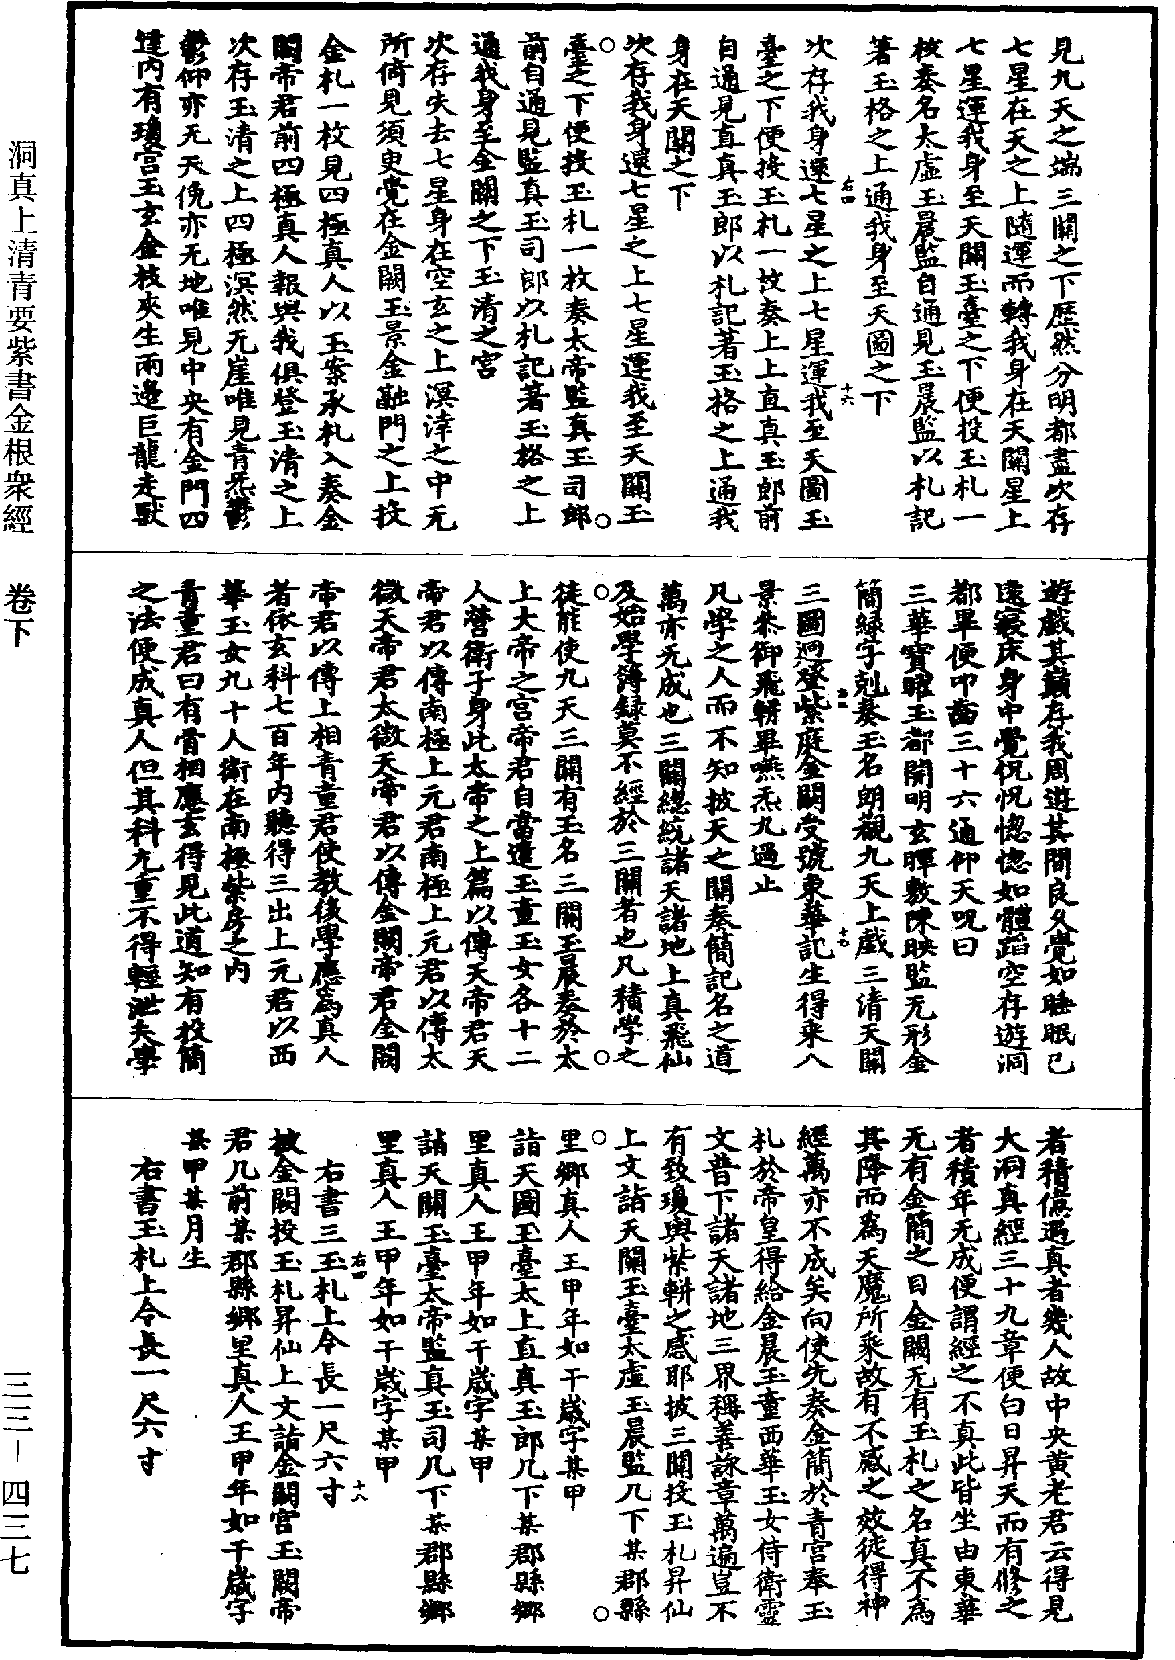 洞真上清青要紫書金根衆經　卷下　三三－四三七
見九天之端三關之下歷然分明都盡次存
七星在天之上隨運而轉我身在天關星上
七星運我身至天關玉臺之下便投玉札一
枚奏名太虛玉晨監自通見玉晨監以札記
著玉格之上通我身至天圖之下
次存我身還七星之上七星運我至天圖玉
臺之下便投玉札一枚奏上上直真玉郎前
自通見直真玉郎以札記著玉格之上通我
身在天關之下
次存我身還七星之上七星運我至天關玉
臺之下便投玉札一枚奏太帝監真玉司郎
前自通見監真玉司郎以札記著玉格之上
通我身至金闕之下玉清之宮
次存失去七星身在空玄之上溟涬之中无
所倚見須臾覺在金闕玉景金融門之上投
金札一枚見四極真人以玉案承札入奏金
闕帝君前四極真人報與我俱登玉清之上
次存玉清之上四極溟然无崖唯見青炁鬱
鬱仰亦无天俛亦无地唯見中央有金門四
達內有瓊宮玉玄金枝夾生兩邊巨龍走獸
遊戲其巔存我周遊其間良久覺如睡眠已
遠寢床身中覺怳怳惚惚如體蹈空存遊洞
都畢便叩齒三十六通仰天呪曰
三華寶曜玉都開明玄暉敷陳映監无形金
簡綠字剋奏玉名朗觀九天上戲三清天關
三圖迥登紫庭金闕受號東華記生得乘八
景參御飛軿畢嚥炁九過止
凡學之人而不知披天之關奏簡記名之道
萬亦无成也三關總統諸天諸地上真飛仙
及始學簿錄莫不經於三關者也凡積學之
徒能使九天三關有玉名三關玉晨奏於太
上大帝之宮帝君自當遣玉童玉女各十二
人營衛子身此太帝之上篇以傳天帝君天
帝君以傳南極上元君南極上元君以傳太
微天帝君太微天帝君以傳金闕帝君金闕
帝君以傳上相青童君使教後學應為真人
者依玄科七百年內聽得三出上元君以西
華玉女九十人衛在南極紫房之內
青童君曰有骨相應玄得見此道知有投簡
之法便成真人但其科尤重不得輕泄夫學
者積億遇真者幾人故中央黃老君云得見
大洞真經三十九章便白日昇天而有修之
者積年无成便謂經之不真此皆坐由東華
无有金簡之目金闕无有玉札之名真不為
其降而為天魔所乘故有不感之效徒得神
經萬亦不成矣向使先奏金簡於青宮奉玉
札於帝皇得給金晨玉童西華玉女侍衛靈
文普下諸天諸地三界稱善詠章萬遍豈不
有致瓊輿紫軿之感耶披三關投玉札昇仙
上文詣天關玉臺太虛玉晨監几下某郡縣
里鄉真人王甲年如干歲字某甲
詣天圖玉臺太上直真玉郎几下某郡縣鄉
里真人王甲年如干歲字某甲
詣天關玉臺太帝監真玉司几下某郡縣鄉
里真人王甲年如干歲字某甲
右書三玉札上令長一尺六寸
披金闕投玉札昇仙上文詣金闕宮玉闕帝
君几前某郡縣鄉里真人王甲年如干歲字
某甲某月生
右書玉札上令長一尺六寸